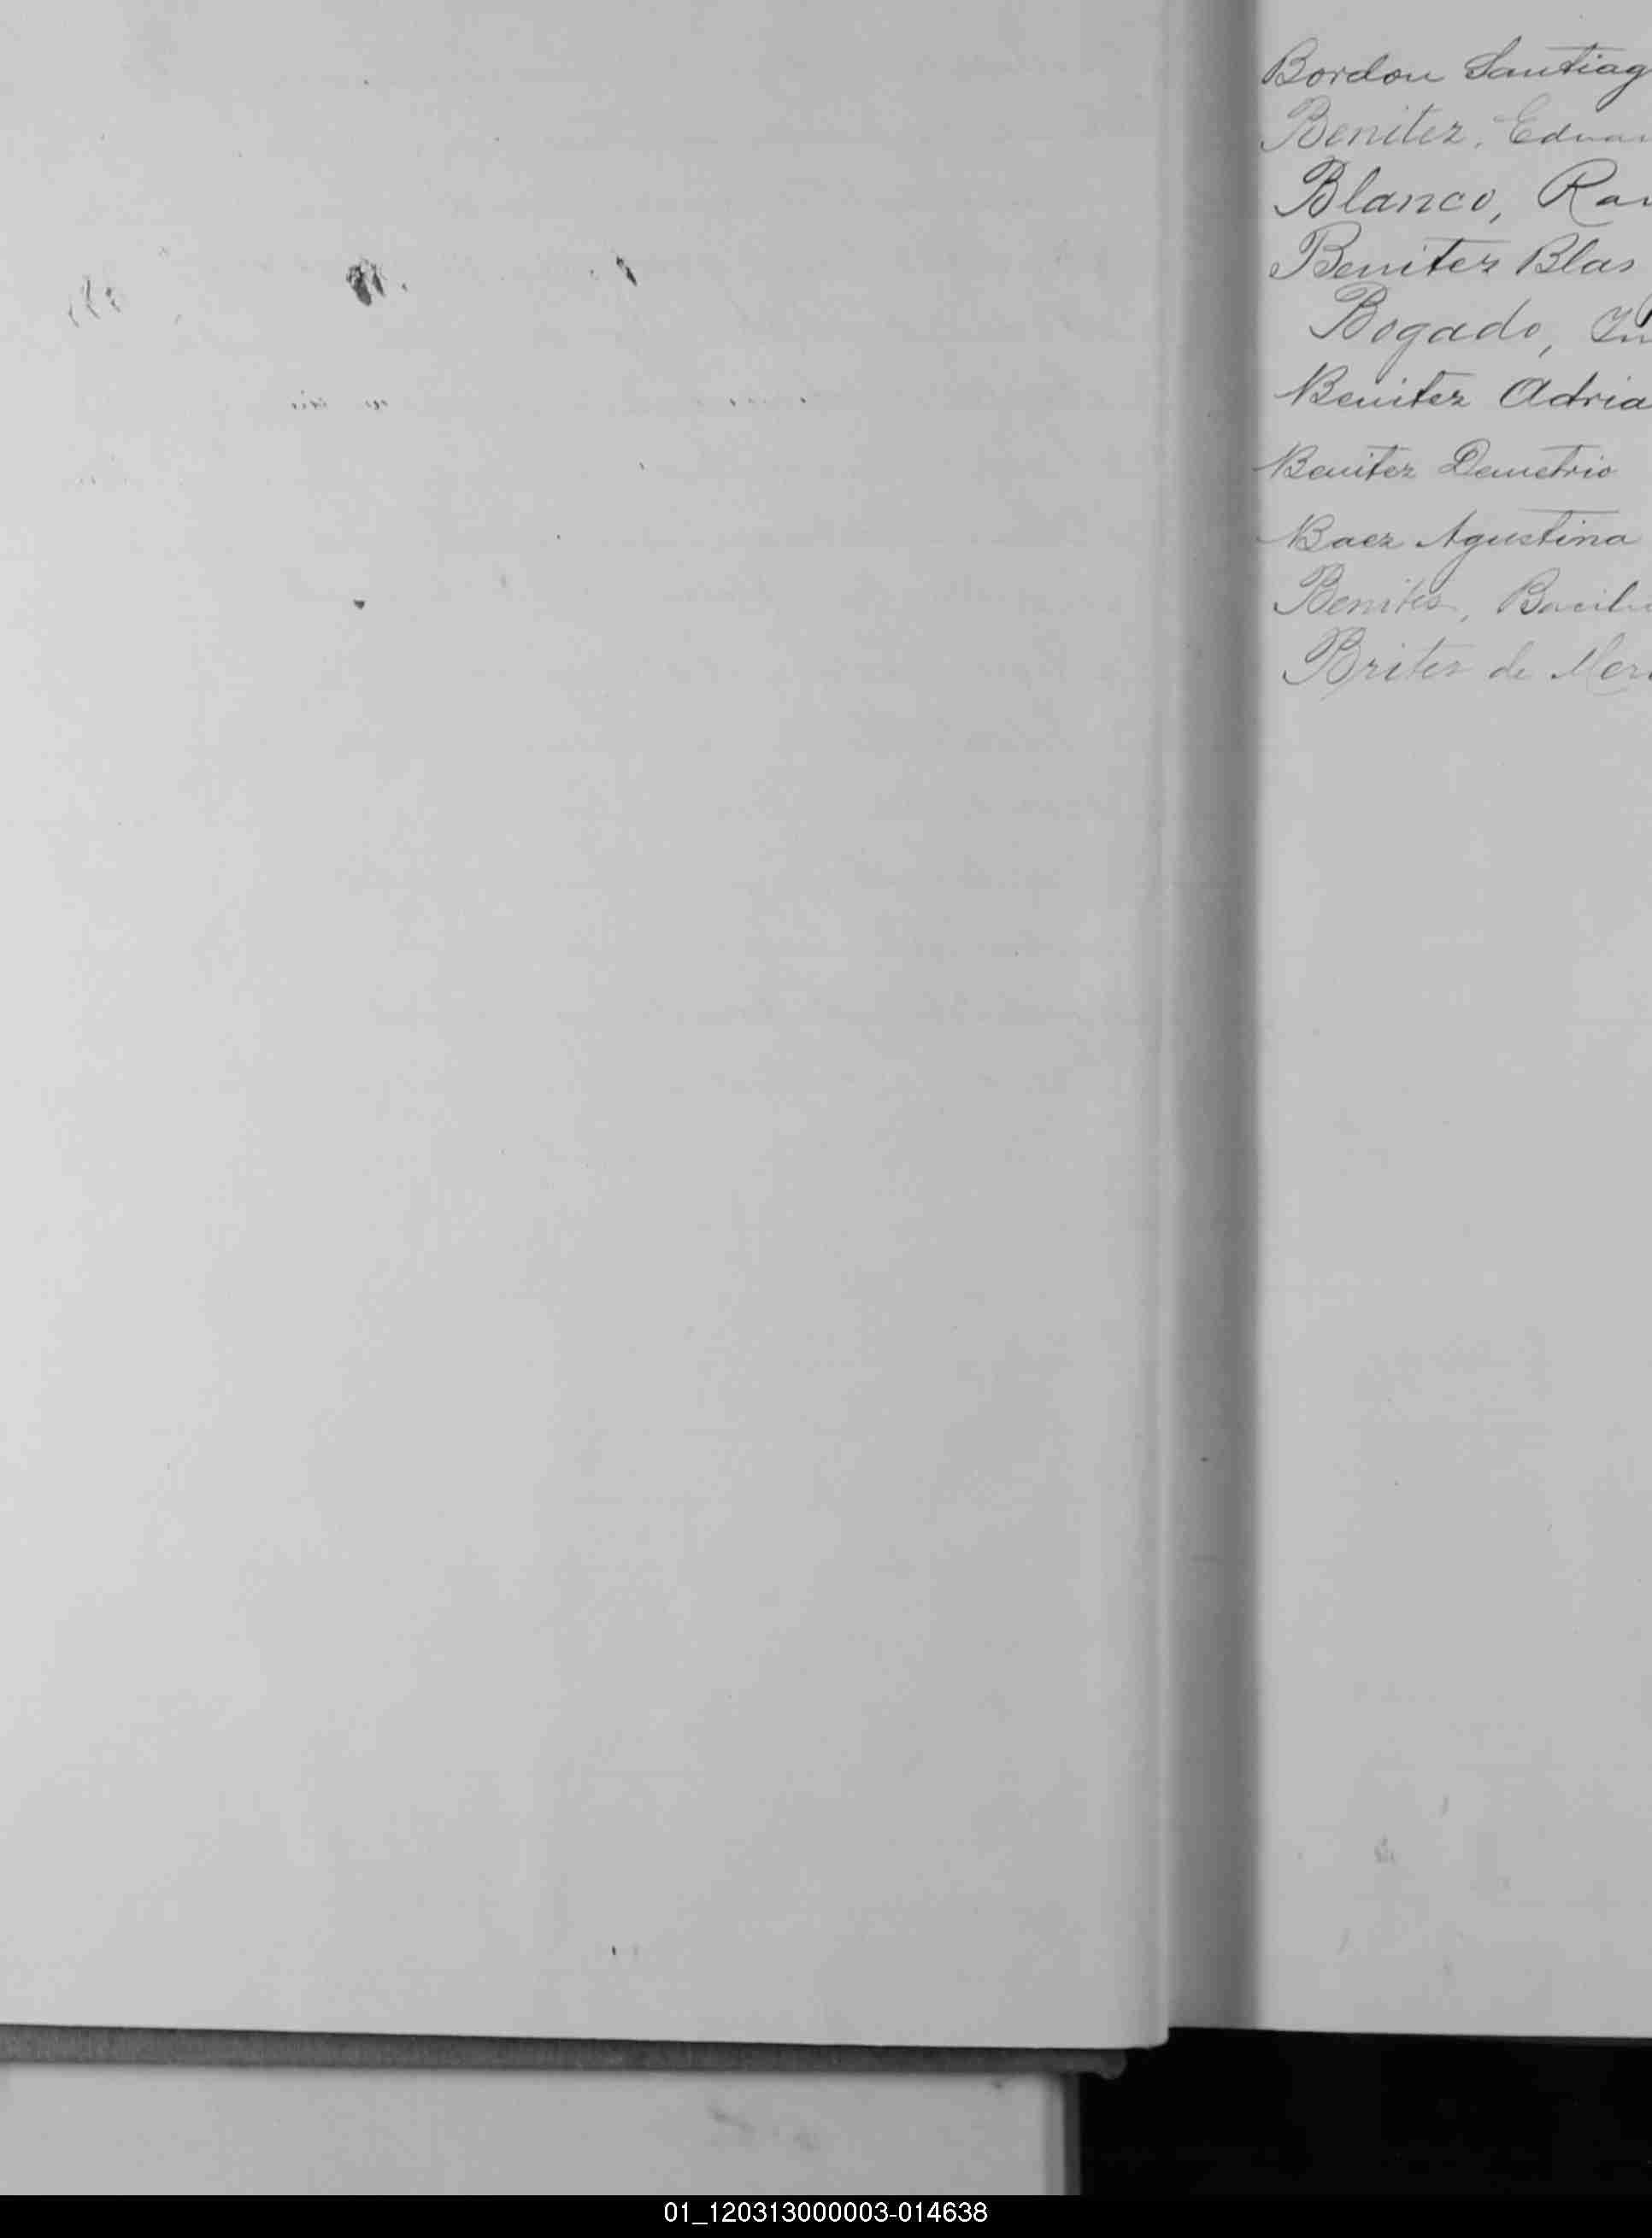 Bordon Santiag
Benitez, Eduar
Blanco, Ra
Benitez Blas
Bogado,
Benitez Adria
Benitez Demetrio
Baez Agustina
Benites, Bacili
Britez de Mer
01_120313000003-014638